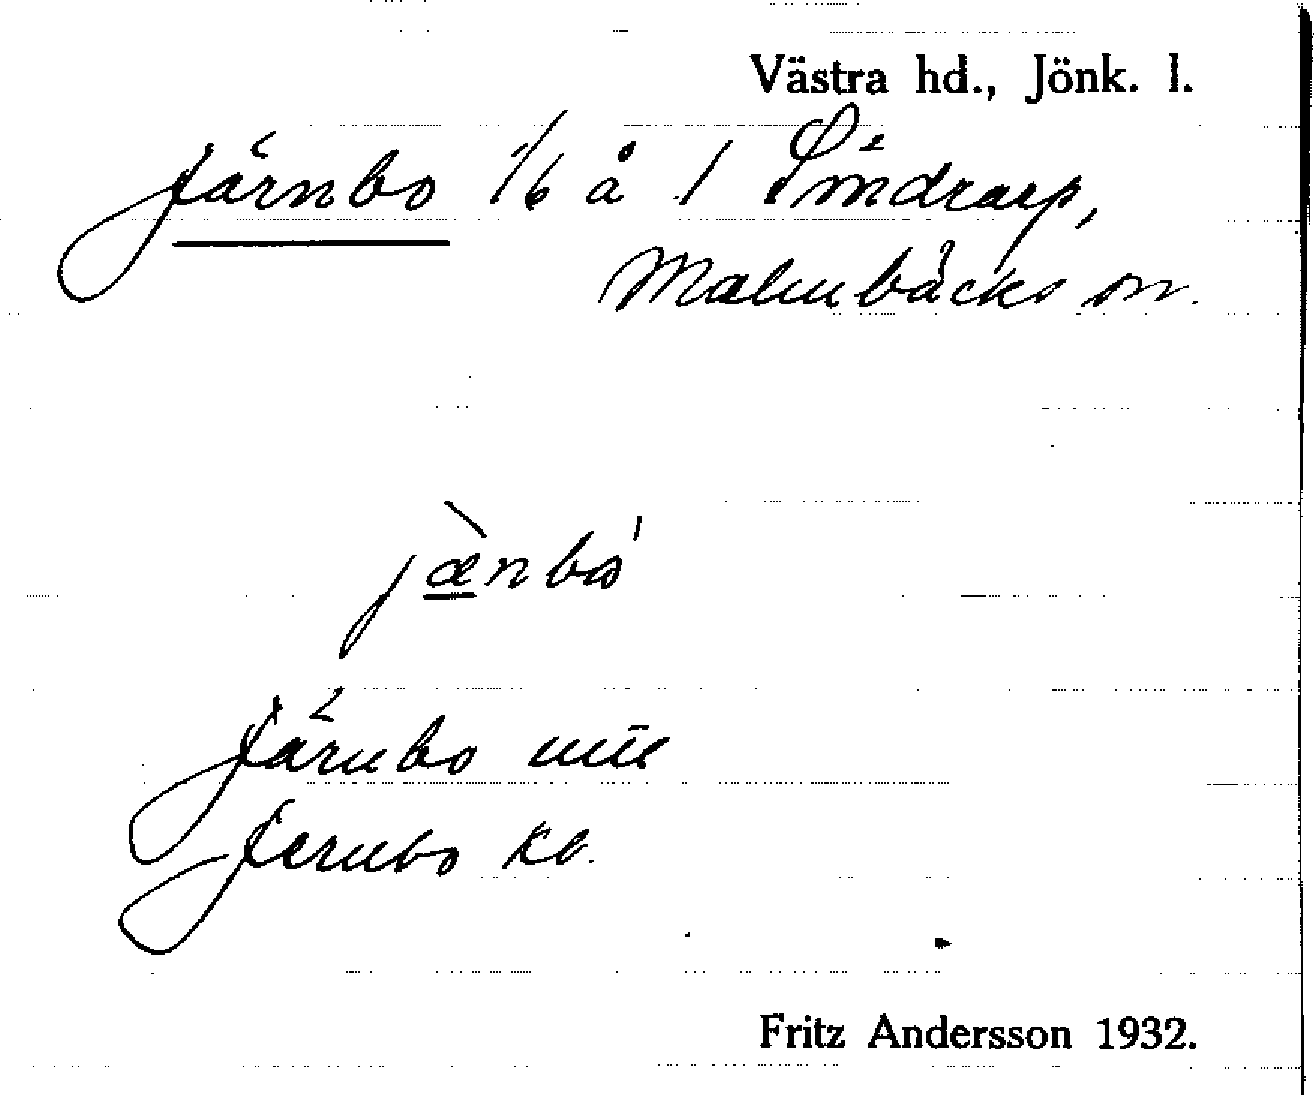 Västra hd., Jönk. l.
Järnbo 1/6 å 1
Malmbäcks sn.
jænbo
Järnbo
Jernbo kb.
Fritz Andersson 1932.